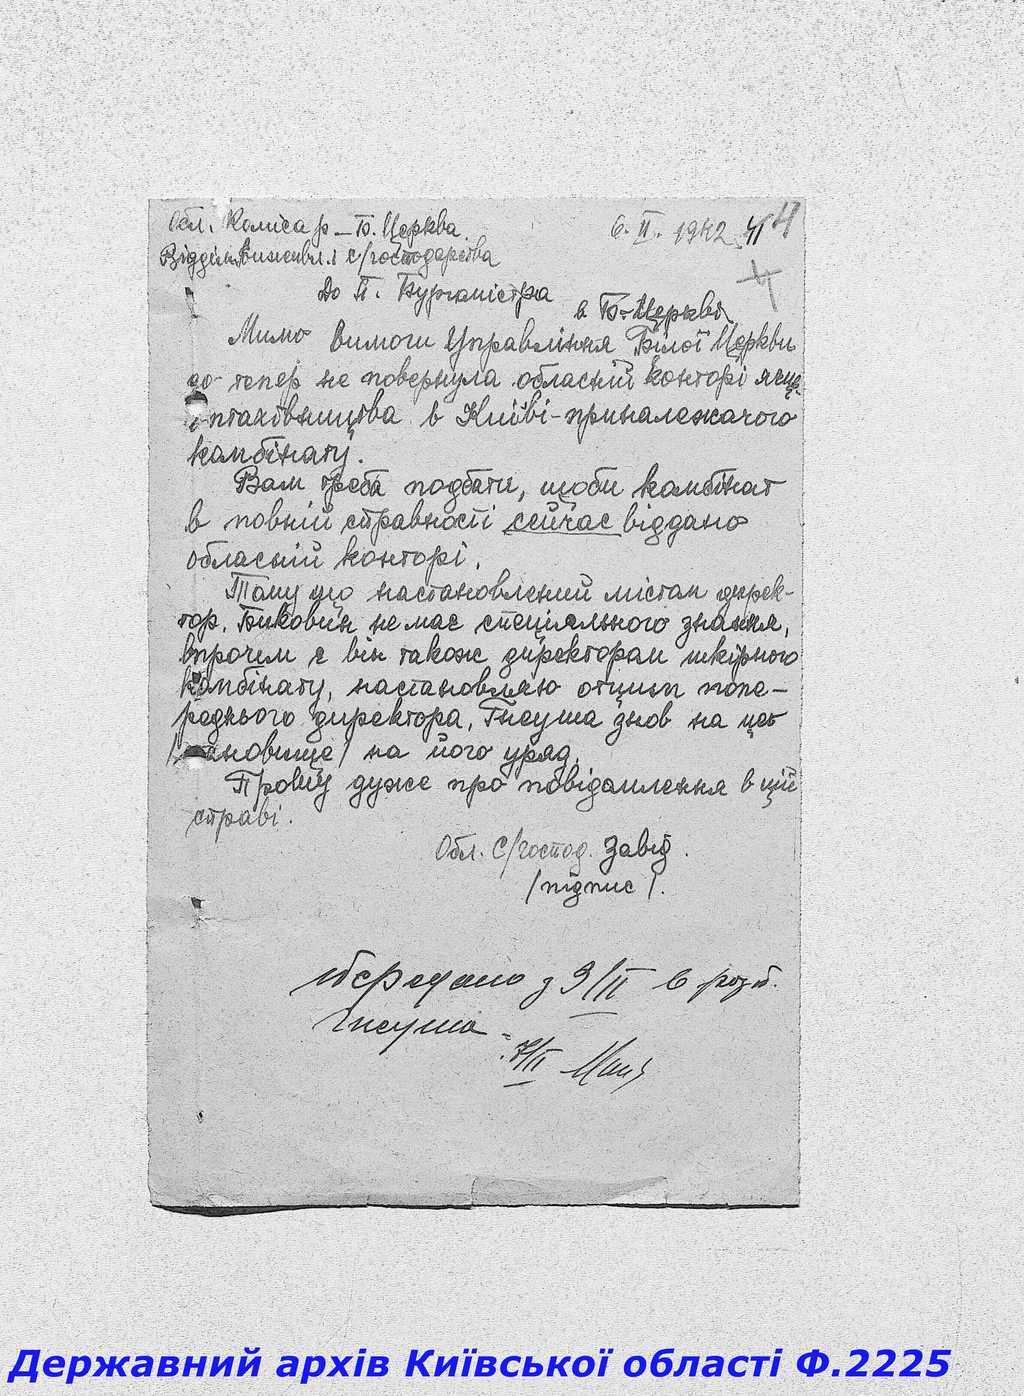 Обл. Комісар – Б. Церква. 6. II. 1942
Відділ Виживл. і с/господарства
До П. Бурґомістра
в Б-Церкві
Мимо вимоги Управління Білої Церкви
до тепер не повернула обласній конторі яйце-
птахівництва в Київі-приналежачого
комбінату.
Вам треба подбати, щоби комбінат
в повній справності сейчас віддано
обласній конторі.
Тому що настановлений містом дирек-
тор. Биковин не має спеціяльного знання,
впрочем є він також директором шкірного
комбінату, настановляю отцим попе-
реднього директора. Гнеуша знов на це
/становище/ на його уряд.
Прошу дуже про повідомлення в цій
справі.
Обл. С/господ. Завід.
/підпис/.
Передано з 9/II в розп.
Гнеуша
7/II
Державний архів Київської області Ф.2225